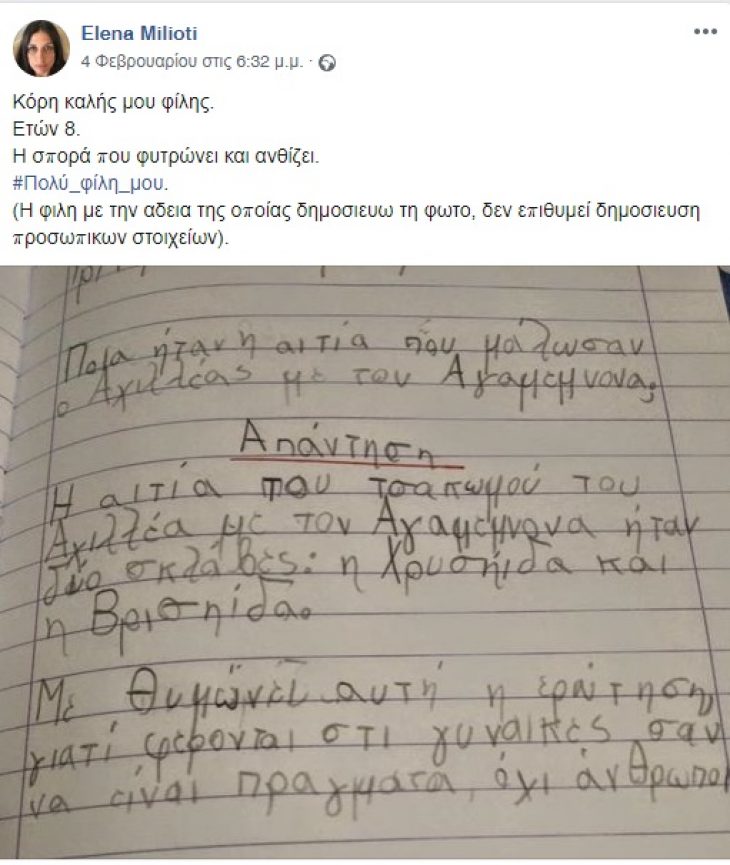 Elena Milioti
4 Φεβρουαρίου στις 6:32 μ.μ. ·
Κόρη καλής μου φίλης.
Ετών 8.
Η σπορά που φυτρώνει και ανθίζει.
#Πολύ_φίλη_μου.
(Η φιλη με την αδεια της οποίας δημοσιευω τη φωτο, δεν επιθυμεί δημοσιευση
προσωπικων στοιχείων).
Ποια ήταν η αιτία που μάλωσαν
ο Αχιλλέας με τον Αγαμεμνονα;
Απάντηση
Η αιτία που τσαπωμού του
Αχιλλέα με τον Αγαμεμνονα ήταν
δύο σκλάβες: η Χρυσηίδα και
η Βρισηίδα.
Με θυμώνει αυτή η ερώτηση,
γιατί φέρονται στι γυναίκες σαν
να είναι πραγματα, όχι άνθρωποι